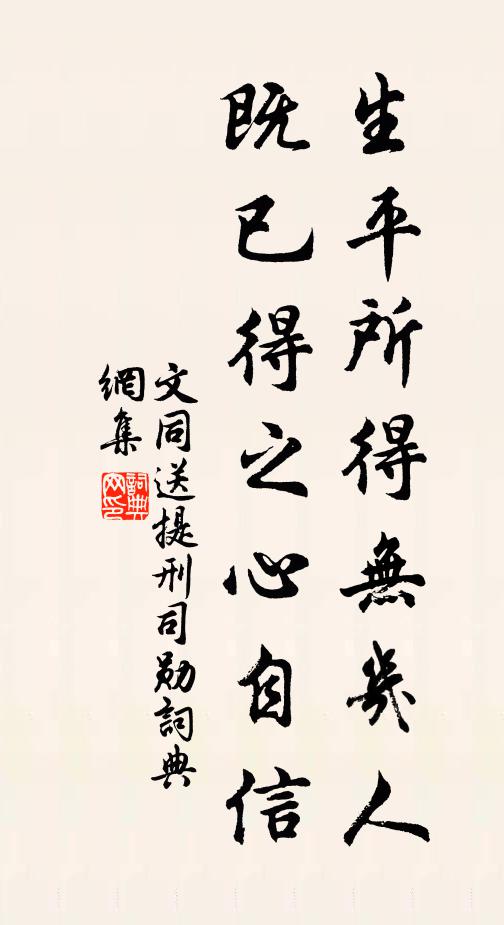 生平所得無幾人
既已得之心自信
文同送提刑司勛詞典
網集
詞典
网印